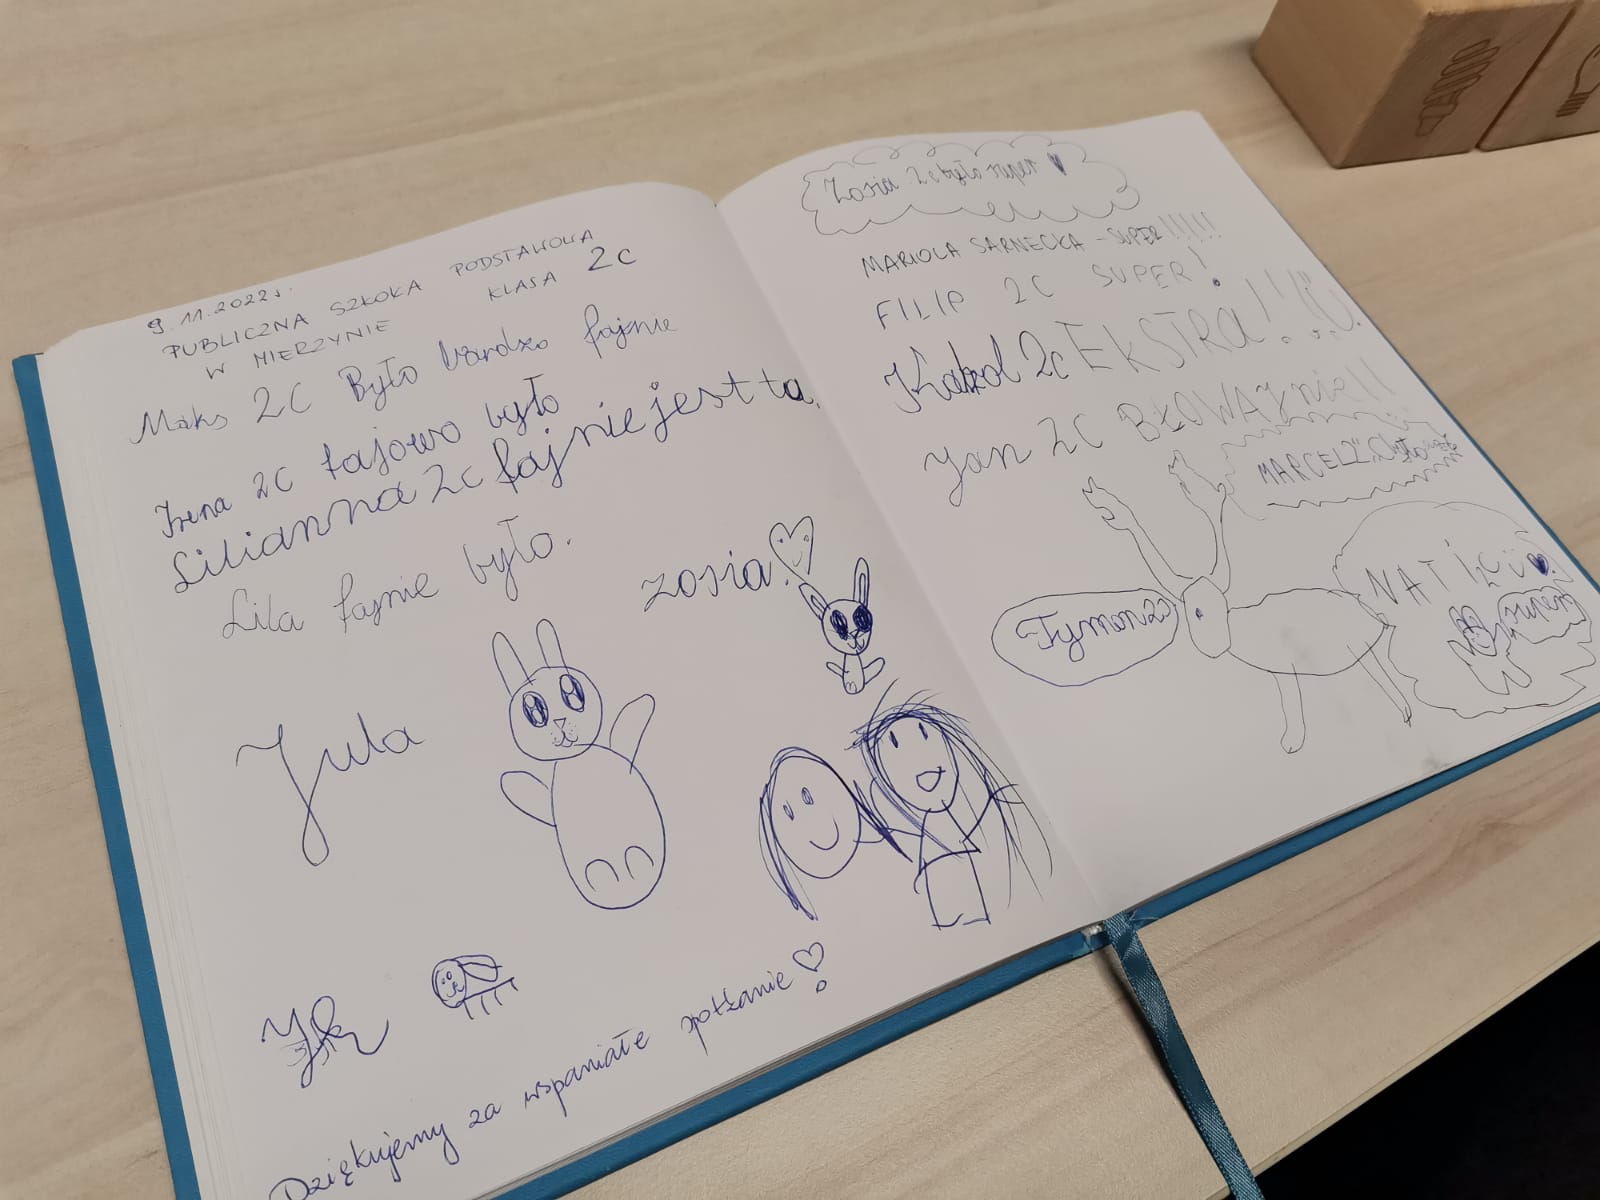 9.11.2022r.
PUBLICZNA SZKOŁA PODSTAWOWA
W MIERZYNIE KLASA 2C
Maks 2C Było bardzo fajnie
Irena 2C fajowo było
Lilianna 2c fajnie jest tu.
Lila fajnie było.
zosia
Jula
Dziękujemy za wspaniałe spotkanie!
Zosia 2c było super
MARIOLA SARNECKA - SUPER!!!!!!
FILIP 2C SUPER!
Karol 2c EKSTRA!!!
Jan 2C
MARCEL 2
Tymon 2c
super